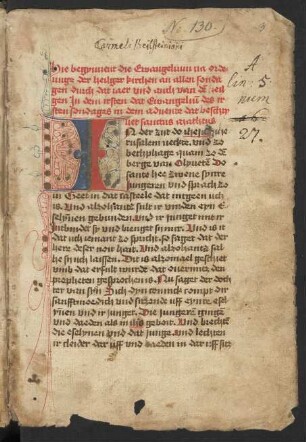 No. 130.
Carmeli
A
lin: 5
num
16.
27.
Hie begynnent die Ewangelium na orde
unge der heilger kirchen an allen sonda
gen durch dat iaer und auch van
gen In dem irsten dat Ewangeliū des irs
ten sondages in dem advente dat beschry
vet sanctus matheus
N der zut do ihesus ihe
rusalem neckte und zo
bethphage quam zo dē
berge van Olyvete Do
sante hee zwene synre
jungeren und sprach zo
in Geet in dat kasteele dat intgeen uch
is. Und alzohant sult ir vinden eyn E
selynen gebunden und ir junge mit ir
intbinder sy und brenget sy mir. Und is it
dat uch iemant zo sprich so saget dat der
here deser noit hait. Und alzohant sal
he sy uch laissen. Dit is alzomael geschiet
umb dat erfult wurde dat overmitz den
propheten gesprochen is. Nu saget der doch
ter van syon Sich dyn connick compt dir
sanftmoedich und sitzende uff eynre ese
lynen und ir junger. Die jungere ginge
und daeden als in ihs geboit. Und brechte
die eselynen und dat junge. Und lechten
ir cleider dar uff und daeden in dar uff sitz